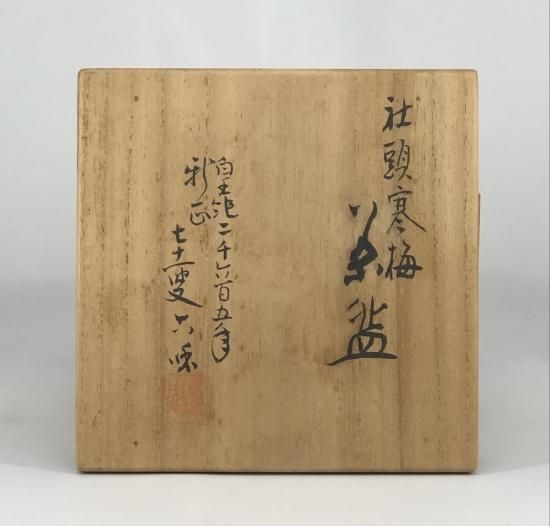 社頭寒梅
茶盌
皇紀二千六百五年
新正
七十一叟六